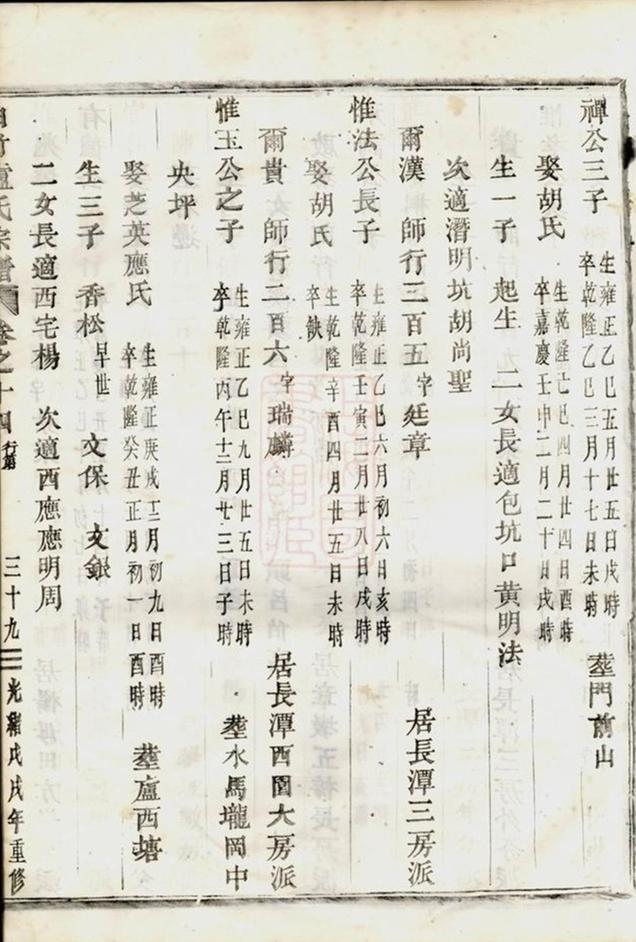 禪公三子 生雍正乙巳五月廿五日戌時 卒乾隆乙巳三月十七日未時 塟門前山
娶胡氏 生乾隆丁巳四月廿四日酉時 卒嘉慶壬申二月二十日戌時
生一子 起生 二女長適包坑口黃明法
次適潛明坑胡尚聖
爾漢 師行三百五字廷章 居長潭三房派
惟法公長子 生雍正乙巳六月初六日亥時 卒乾隆壬寅二月廿八日戌時
娶胡氏 生乾隆辛酉四月廿五日未時 卒缺
爾貴 師行二百六字瑞麟 居長潭西園大房派
惟玉公之子 生雍正乙巳九月廿五日未時 卒乾隆丙午十二月廿三日子時 塟水馬壠岡中
央坪
娶芝英應氏 生雍正庚戌十二月初九日酉時 卒乾隆癸丑正月初一日酉時 塟盧西塘
生三子 香松早世 文保 文銀
二女長適西宅楊 次適西應應明周
盧氏宗譜 卷之十四 行第 三十九 光緒戊戌年重修